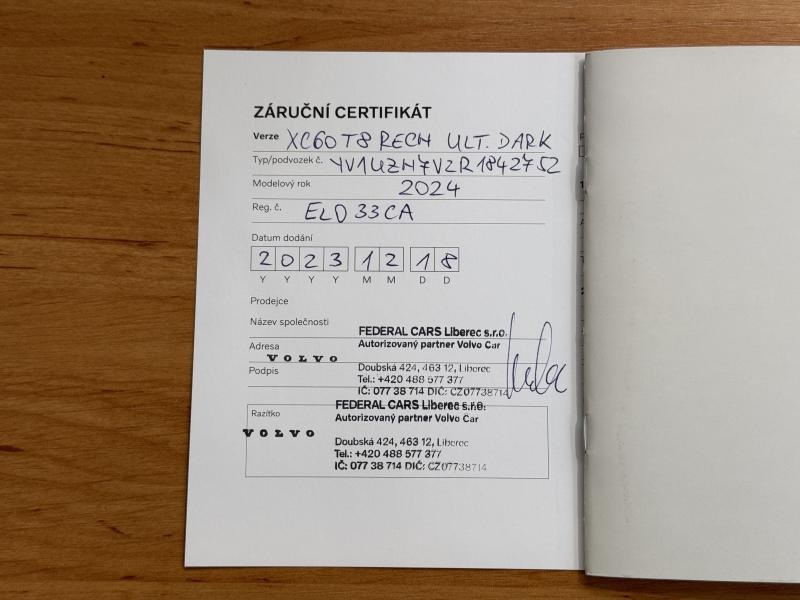 ZÁRUČNÍ CERTIFIKÁT
Verze XC60 T8 RECH ULT. DARK
Typ/podvozek č. YV1UZH7VZR1842752
Modelový rok 2024
Reg. č. ELD 33CA
Datum dodání
2 0 2 3 1 2 1 8
Y Y Y Y M M D D
Prodejce
Název společnosti
FEDERAL CARS Liberec s.r.o.
Autorizovaný partner Volvo Car
Adresa
VOLVO
Podpis
Doubská 424, 463 12, Liberec
Tel.: +420 488 577 377
IČ: 077 38 714 DIČ: CZ07738714
FEDERAL CARS Liberec s.r.o.
Razítko
Autorizovaný partner Volvo Car
VOLVO
Doubská 424, 463 12, Liberec
Tel.: +420 488 577 377
IČ: 077 38 714 DIČ: CZ07738714